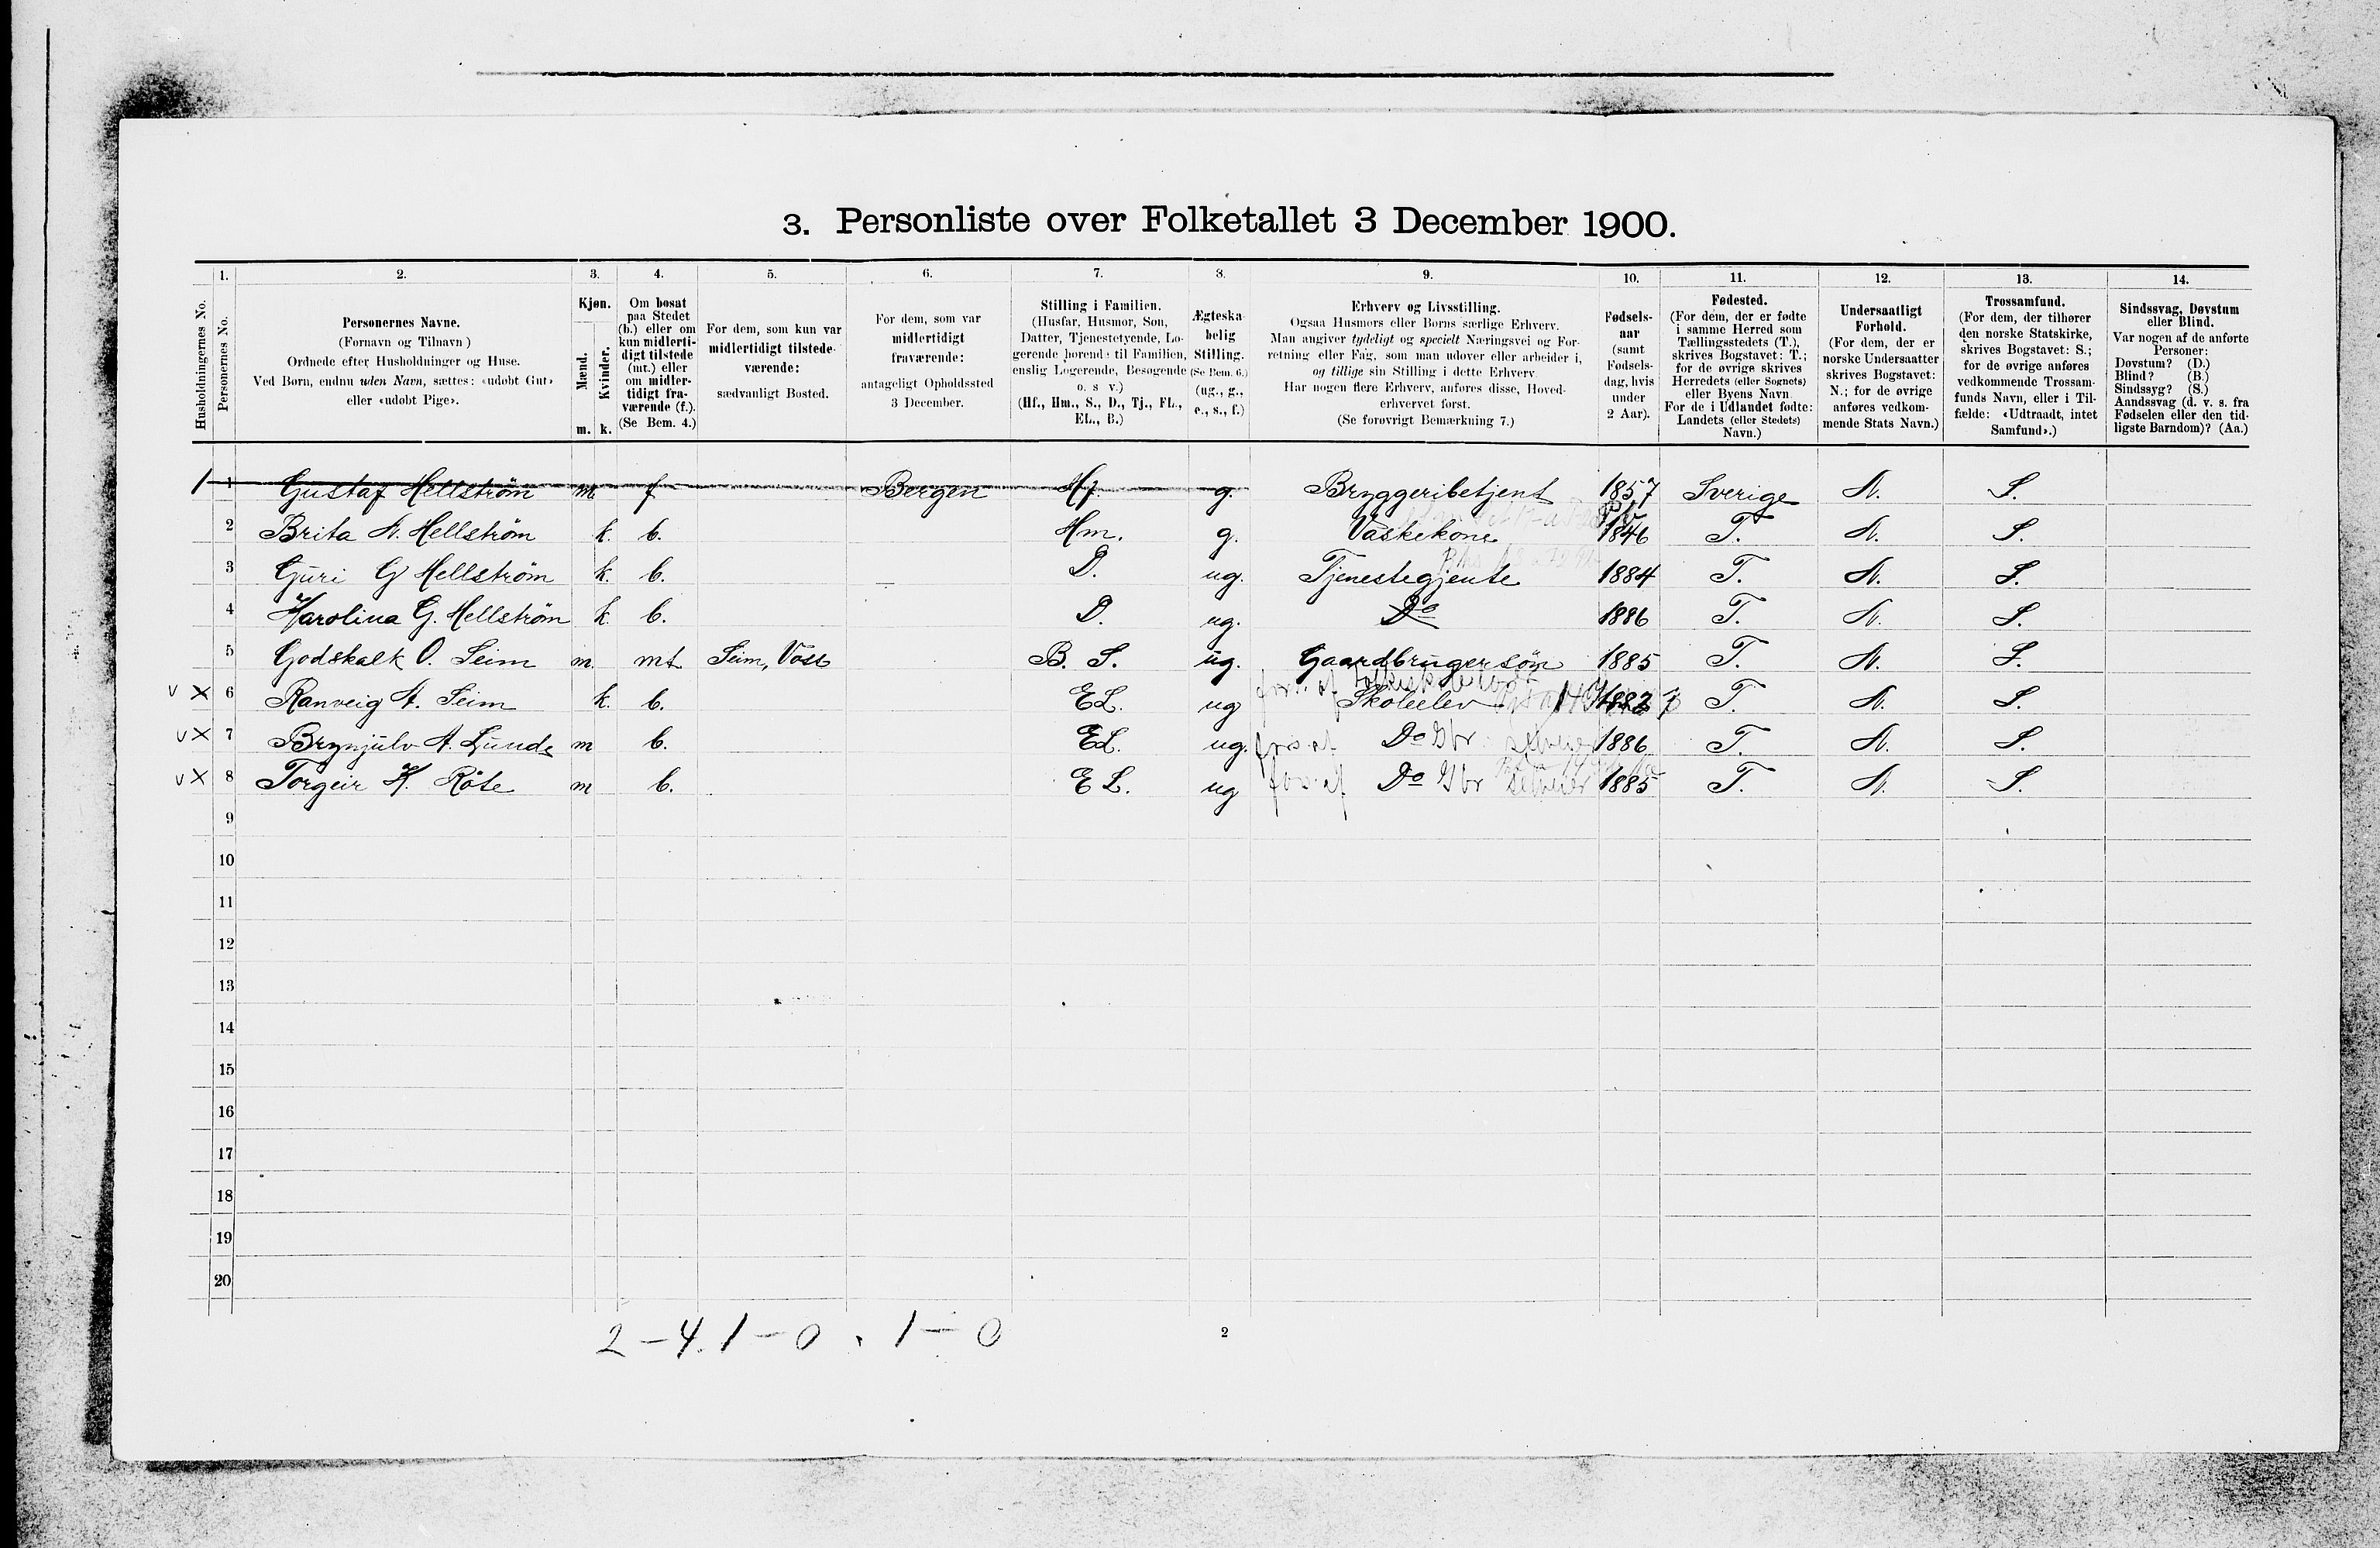 3. Personliste over Folketallet 3 December 1900.
1. 2. 3. 4. 5. 6. 7. 8. 9. 10. 11. 12. 13. 14.
Husholdningernes No.
Personernes No.
Personernes Navne.
(Fornavn og Tilnavn)
Ordnede efter Husholdninger og Huse.
Ved Børn, endnu uden Navn, sættes: «udøbt Gut»
eller «udøbt Pige».
Kjøn.
Mænd.
Kvinder.
m. k.
Om bosat
paa Stedet
(b.) eller om
kun midlerti-
digt tilstede
(mt.) eller
om midler-
tidigt fra-
værende (f.).
(Se Bem. 4.)
For dem, som kun var
midlertidigt tilstede-
værende:
sædvanligt Bosted.
For dem, som var
midlertidigt
fraværende:
antageligt Opholdssted
3 December.
Stilling i Familien.
(Husfar, Husmor, Søn,
Datter, Tjenestetyende, Lo-
gerende hørende til Familien,
enslig Logerende, Besøgende
o. s v.)
(Hf., Hm., S., D., Tj., FL.,
EL., B.)
Ægteska-
belig
Stilling.
(Se Bem. 6.)
(ug., g.,
e., s., f.)
Erhverv og Livsstilling.
Ogsaa Husmors eller Børns særlige Erhverv.
Man angiver tydeligt og specielt Næringsvei og For-
retning eller Fag, som man udøver eller arbeider i,
og tillige sin Stilling i dette Erhverv.
Har nogen flere Erhverv, anføres disse, Hoved-
erhvervet først.
(Se forøvrigt Bemærkning 7.)
Fødsels-
aar
(samt
Fødsels-
dag, hvis
under
2 Aar).
Fødested.
(For dem, der er fødte
i samme Herred som
Tællingsstedets (T.),
skrives Bogstavet: T.;
for de øvrige skrives
Herredets (eller Sognets)
eller Byens Navn.
For de i Udlandet fødte:
Landets (eller Stedets)
Navn.)
Undersaatligt
Forhold.
(For dem, der er
norske Undersaatter
skrives Bogstavet:
N.; for de øvrige
anføres vedkom-
mende Stats Navn.)
Trossamfund.
(For dem, der tilhører
den norske Statskirke,
skrives Bogstavet: S.;
for de øvrige anføres
vedkommende Trossam-
funds Navn, eller i Til-
fælde: «Udtraadt, intet
Samfund».)
Sindssvag, Døvstum
eller Blind.
Var nogen af de anførte
Personer:
Døvstum? (D.)
Blind? (B.)
Sindssyg? (S.)
Aandssvag (d. v. s. fra
Fødselen eller den tid-
ligste Barndom)? (Aa.)
1 1 Gustaf Hellström m f Bergen Hf. g. Bryggeribetjent 1857 Sverige N. S.
2 Brita N. Hellström k. b. Hm. g. Vaskekone 1846 T. N. S.
3 Guri G Hellström k. b. D. ug. Tjenestegjente 1884 T. N. S.
4 Karolina G. Hellström k. b. D. ug. Do 1886 T. N. S.
5 Godskalk O. Seim m. mt Seim, Voss B. S. ug. Gaardbrugersøn 1885 T. N. S.
v x 6 Ranveig A. Seim k. b. EL. ug Skoleelev T. N. S.
v x 7 Brynjulv A. Lunde m b. EL. ug. Do Gbr. selveier 1886 T. N. S.
v x 8 Torgeir K. Röte m b. EL. ug Do Gbr selveier 1885 T. N. S.
9
10
11
12
13
14
15
16
17
18
19
20
2 - 4. 1 - 0 . 1 - 0
2